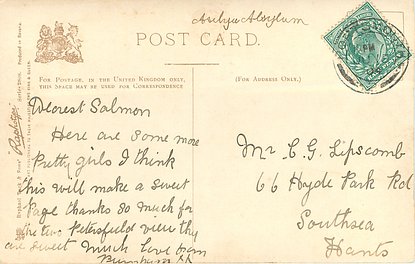 POST CARD.
FOR POSTAGE, IN THE UNITED KINGDOM ONLY,
THIS SPACE MAY BE USED FOR CORRESPONDENCE
(FOR ADDRESS ONLY.)
Dearest Salmon
Here are some more
Pretty girls I think
this will make a sweet
Page thanks so much for
the two Petersfield views they
are sweet much love from
Mr C. G. Lipscomb
66 Hyde Park Rd
Southsea
Hants